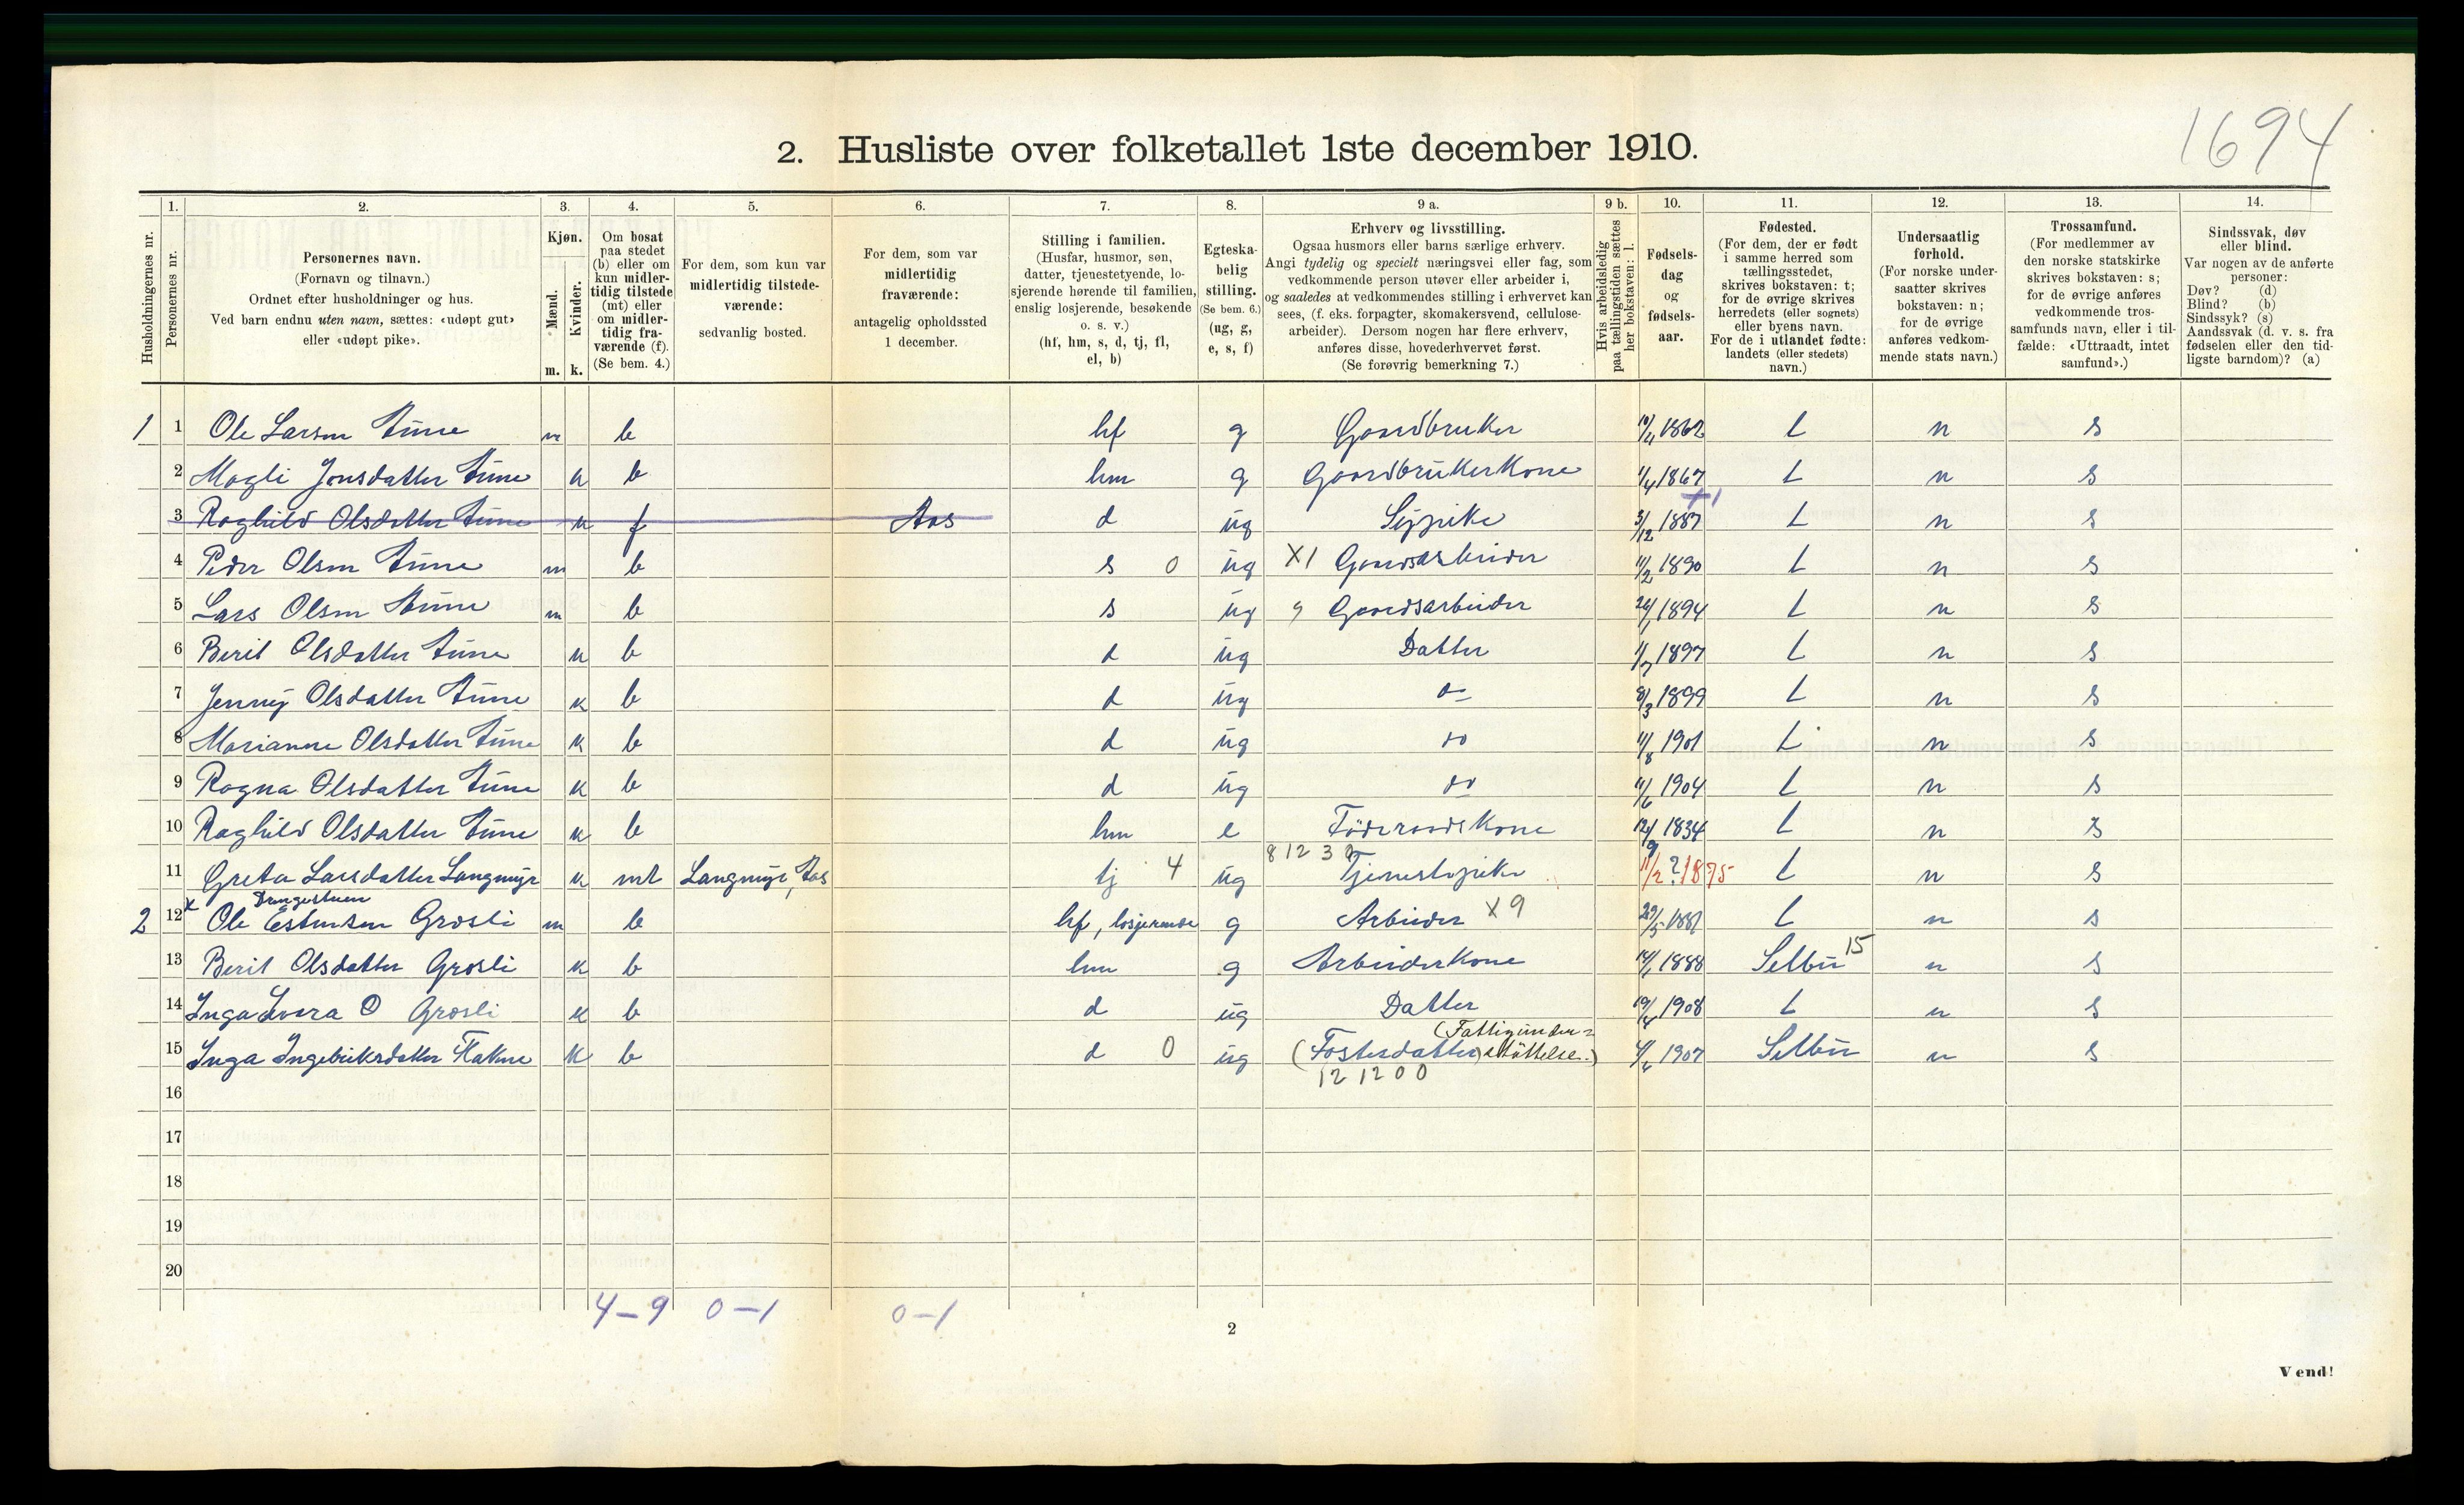 1694
2. Husliste over folketallet 1ste december 1910.
1. 2. 3. 4. 5. 6. 7. 8. 9 a. 9 b. 10. 11. 12. 13. 14.
Husholdningernes nr.
Personernes nr.
Personernes navn.
(Fornavn og tilnavn.)
Ordnet efter husholdninger og hus.
Ved barn endnu uten navn, sættes: «udøpt gut»
eller «udøpt pike».
Kjøn.
Mænd.
Kvinder.
m. k.
Om bosat
paa stedet
(b) eller om
kun midler-
tidig tilstede
(mt) eller
om midler-
tidig fra-
værende (f).
(Se bem. 4.)
For dem, som kun var
midlertidig tilstede-
værende:
sedvanlig bosted.
For dem, som var
midlertidig
fraværende:
antagelig opholdssted
1 december.
Stilling i familien.
(Husfar, husmor, søn,
datter, tjenestetyende, lo-
sjerende hørende til familien,
enslig losjerende, besøkende
o. s. v.)
(hf, hm, s, d, tj, fl,
el, b)
Egteska-
belig
stilling.
(Se bem. 6.)
(ug, g,
e, s, f)
Erhverv og livsstilling.
Ogsaa husmors eller barns særlige erhverv.
Angi tydelig og specielt næringsvei eller fag, som
vedkommende person utøver eller arbeider i,
og saaledes at vedkommendes stilling i erhvervet kan
sees, (f. eks. forpagter, skomakersvend, cellulose-
arbeider). Dersom nogen har flere erhverv,
anføres disse, hovederhvervet først.
(Se forøvrig bemerkning 7.)
Hvis arbeidsledig
paa tællingstiden sættes
her bokstaven: l.
Fødsels-
dag
og
fødsels-
aar.
Fødested.
(For dem, der er født
i samme herred som
tællingsstedet,
skrives bokstaven: t;
for de øvrige skrives
herredets (eller sognets)
eller byens navn.
For de i utlandet fødte:
landets (eller stedets)
navn.)
Undersaatlig
forhold.
(For norske under-
saatter skrives
bokstaven: n;
for de øvrige
anføres vedkom-
mende stats navn.)
Trossamfund.
(For medlemmer av
den norske statskirke
skrives bokstaven: s;
for de øvrige anføres
vedkommende tros-
samfunds navn, eller i til-
fælde: «Uttraadt, intet
samfund».)
Sindssvak, døv
eller blind.
Var nogen av de anførte
personer:
Døv? (d)
Blind? (b)
Sindssyk? (s)
Aandssvak (d. v. s. fra
fødselen eller den tid-
ligste barndom)? (a)
1 1 Ole Larsen Aune m b hf g Gaardbruker 1862 t n s
2 Magli Jonsdatter Aune k b hm g Gaardbrukerkone 1/4 1867 t n s
3 Raghild Olsdatter Aune k f Aas d ug Sypike 3/12 1887 +1 t n s
4 Peder Olsen Aune m b s 0 ug X1 Gaardsarbeider 11/2 1890 t n s
5 Lars Olsen Aune m b s ug Gaardsarbeider 26/1 1894 t n s
6 Beril Olsdatter Aune k b d ug Datter 1/7 1897 t n s
7 Jenny Olsdatter Aune k b d ug do 8/3 1899 t n s
8 Marianne Olsdatter Aune k b d ug do 11/8 1901 t n s
9 Ragna Olsdatter Aune k b d ug do 11/6 1904 t n s
10 Raghild Olsdatter Aune k b hm e Föderaadskone 12/9 1834 t n s
11 Greta Larsdatter Langmyr k mt Langmyr, Aas tj 4 ug 8 12 3 Tjenestepike 11/2 ? 1895 t n s
2 12 x Ole Estensen Grøsli m b hf, losjerende g Arbeider X9 29/5 1881 t n s
13 Beril Olsdatter Grøsli k b hm g Arbeiderkone 1888 Selbu 15 n s
14 Inga Lovra O Grøsli k b d ug Datter 19/4 1908 t n s
15 Inga Ingebriktsdatter Flakne k b d 0 ug (Fosterdatter) (Fattigunder=støttelse.) 1907 Selbu n s
12 12 0 0
16
17
18
19
20
4 – 9 0 – 1 0 – 1
2
Vend!